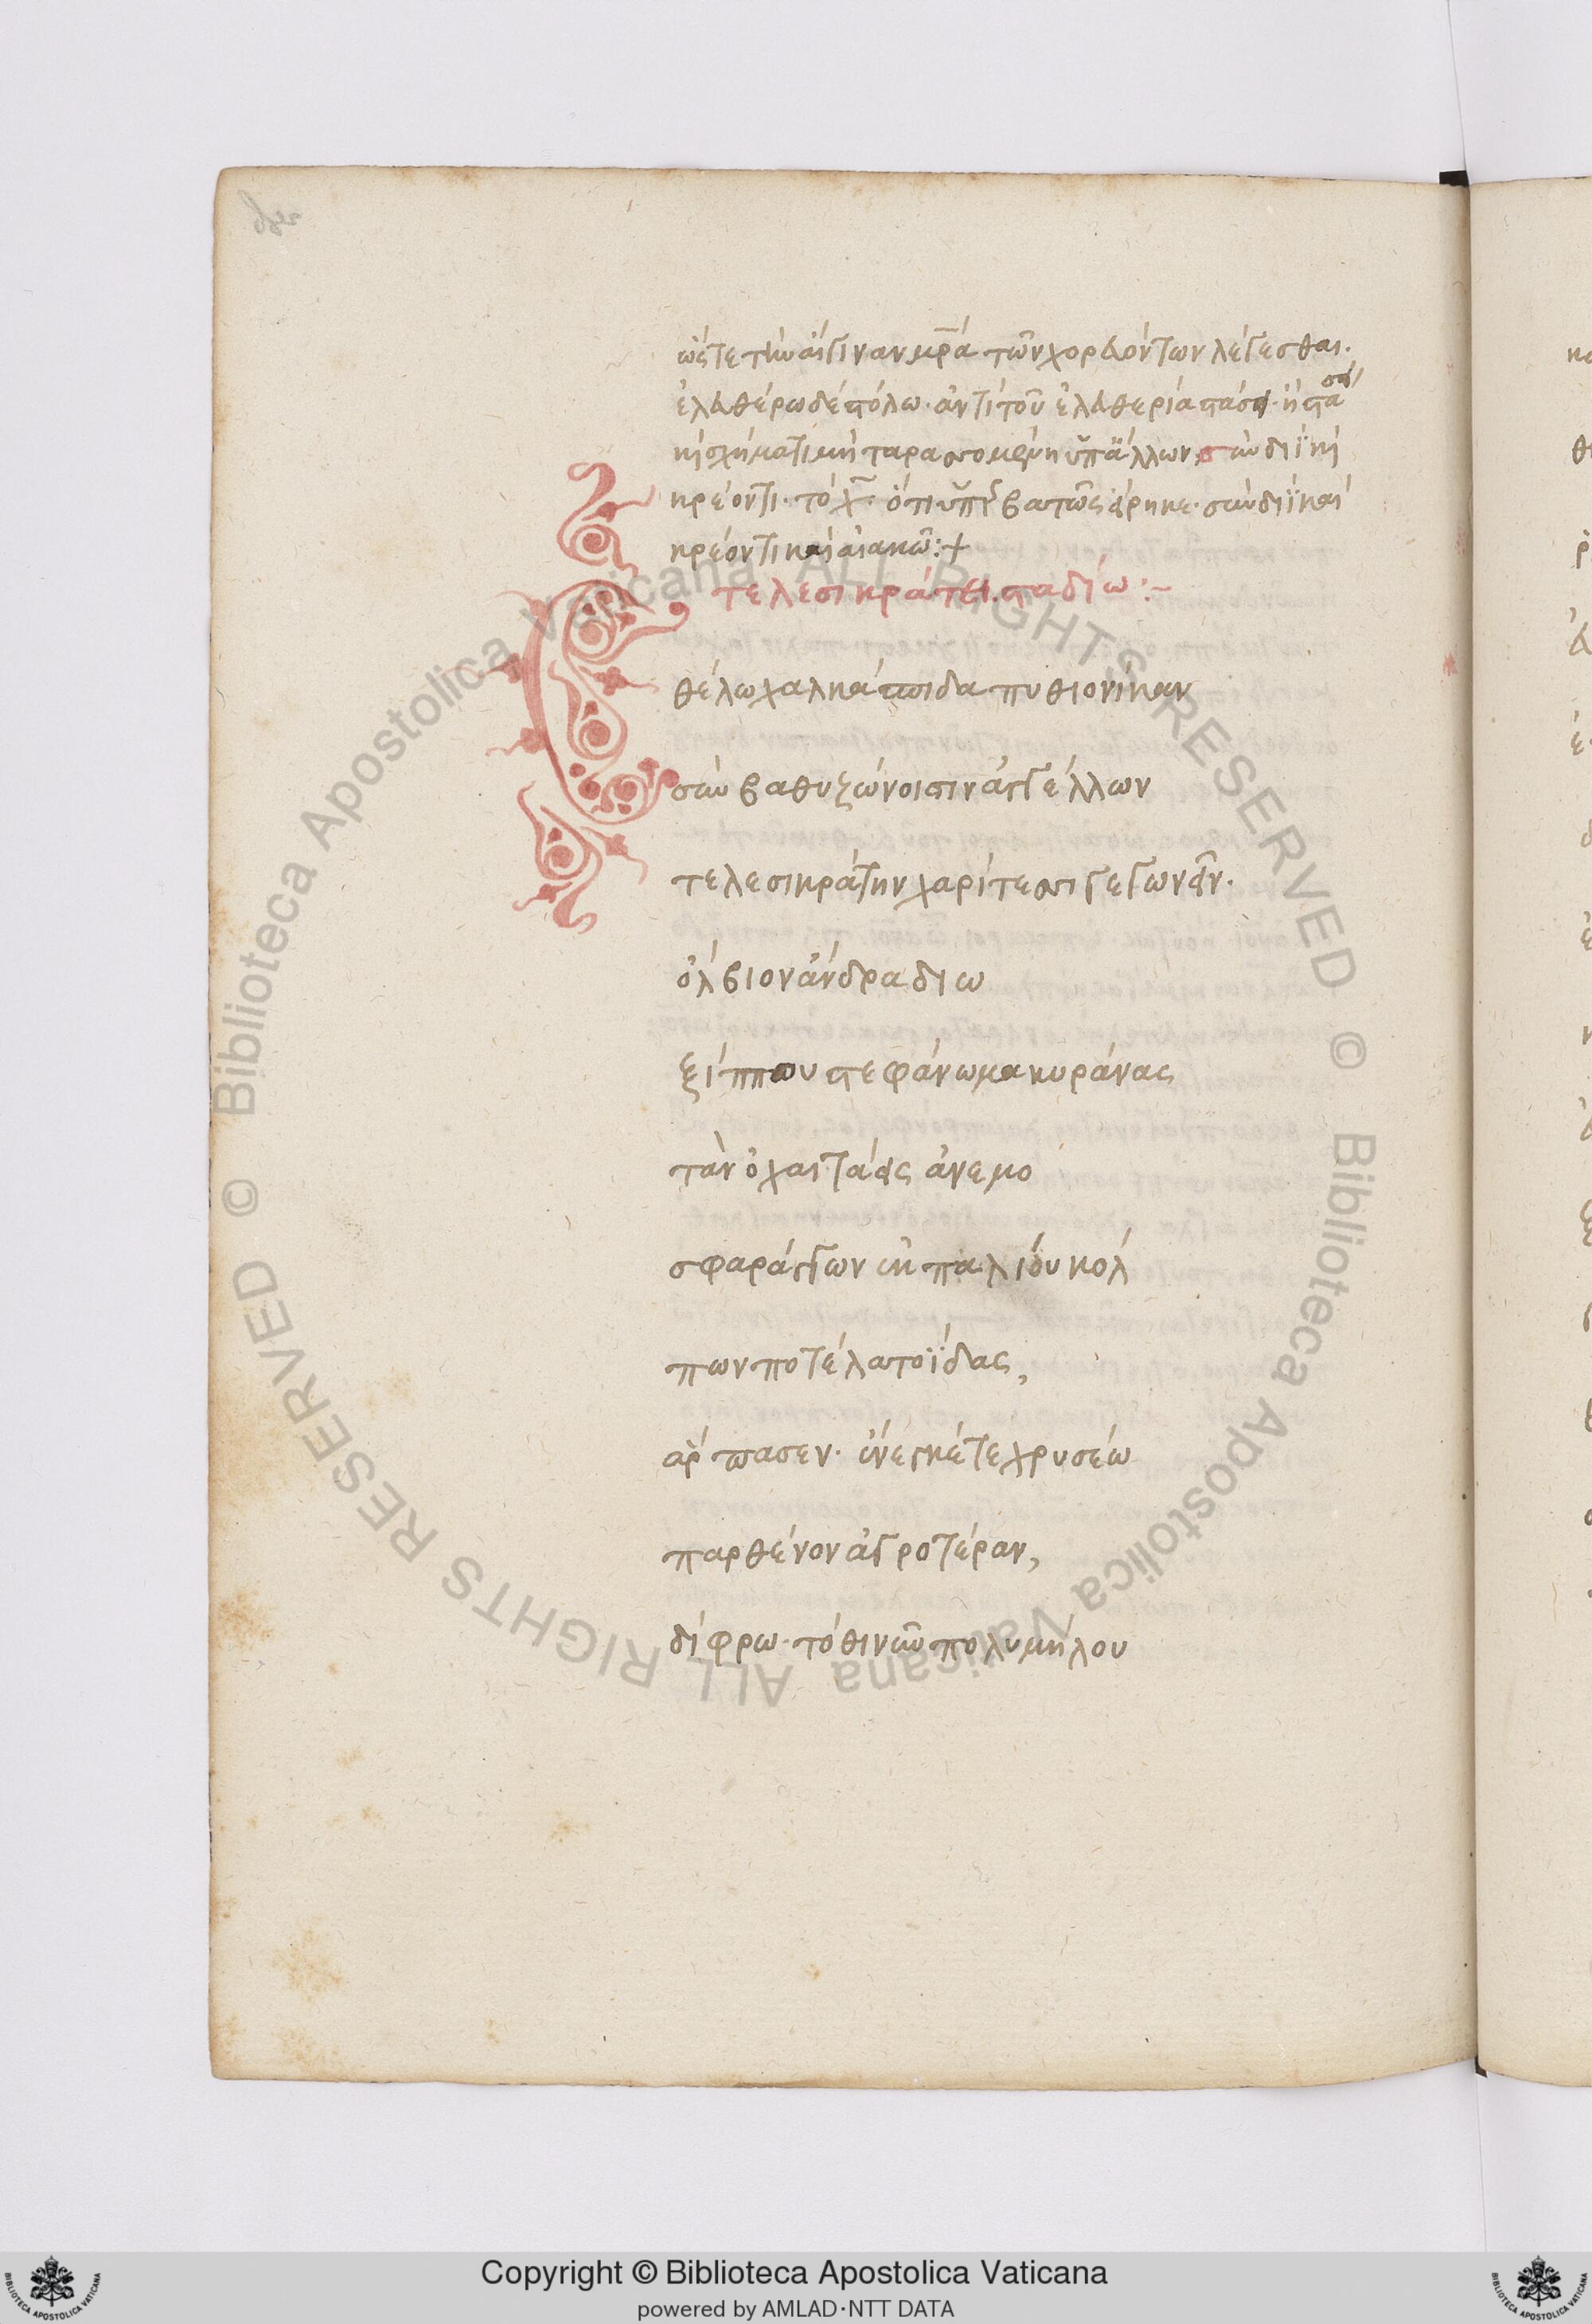 ὥστε τὴν αἴγιναν μρ̅α τῶν χορευόντων λέγεσθαι.
ἐλευθέρω δὲ στόλω· ἀντὶ τοῦ ἐλευθερία στάσει· ἢ στα σει
κὴ σχήματι μὴ ταρασσομένη ὑπ' ἄλλων, σὺν διῒ κὴ
κρέοντι· τὸ χ· ὅτι ὑπερβατῶς εἴρηκε· σὺν διῒ καὶ
κρέοντι καὶ αἰακῶ:+
τελεσικράτει σταδίω:~
Ἐθέλω χαλκάσπιδα πυθιονίκαν
σὺν βαθυζώνοισιν ἀγγέλλων
τελεσικράτην χαρίτεσσι γεγωνεῖν·
ὄλβιον ἄνδρα διω
ξίππου στεφάνωμα κυράνας
τὰν ὁ χαιτάεις ἀνεμο
σφαράγων ἐκ παλίου κόλ
πων ποτὲ λατοΐδας,
ἅρπασεν· ἔνεγκέ τε χρυσέω
παρθένον ἀγροτέραν,
δίφρω· τόθι νῶ πολυμήλου
Copyright © Biblioteca Apostolica Vaticana
powered by AMLAD·NTT DATA
© Biblioteca Apostolica Vaticana ALL RIGHTS RESERVED © Biblioteca Apostolica Vaticana ALL RIGHTS RESERVED
BIBLIOTECA APOSTOLICA VATICANA
BIBLIOTECA APOSTOLICA VATICANA